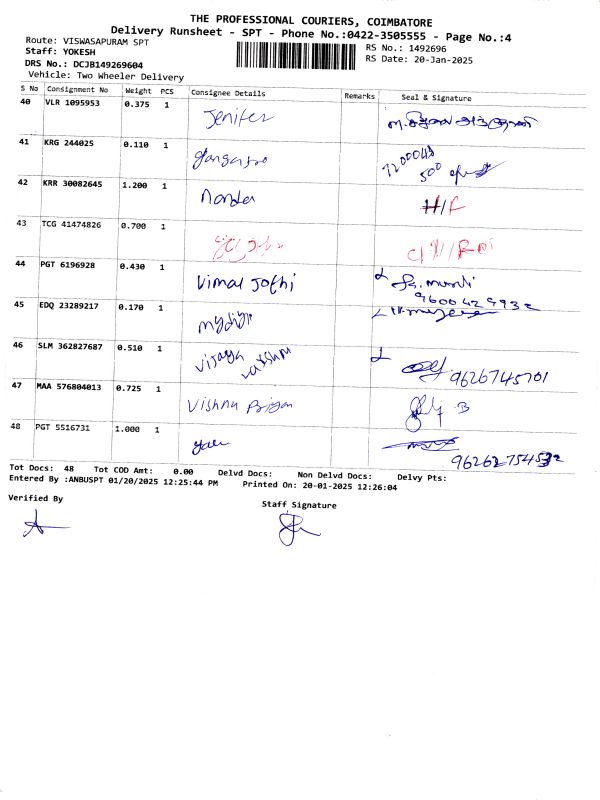 THE PROFESSIONAL COURIERS, COIMBATORE
Delivery Runsheet - SPT - Phone No.:0422-3505555 - Page No.:4
Route: VISWASAPURAM SPT
RS No.: 1492696
Staff: YOKESH
RS Date: 20-Jan-2025
DRS No.: DCJB149269604
Vehicle: Two Wheeler Delivery
S No Consignment No Weight PCS Consignee Details Remarks Seal & Signature
40 VLR 1095953 0.375 1 Jenifer
41 KRG 244025 0.110 1
42 KRR 30082645 1.200 1 Nanda H/F
43 TCG 41474826 0.700 1
44 PGT 6196928 0.430 1 Vimal Jothi
9600429932
45 EDQ 23289217 0.170 1
46 SLM 362827687 0.510 1 Vijaya Lakshmi 9626745701
47 MAA 576804013 0.725 1 Vishnu Priyan
48 PGT 5516731 1.000 1
Tot Docs: 48 Tot COD Amt: 0.00 Delvd Docs: Non Delvd Docs: Delvy Pts:
Entered By :ANBUSPT 01/20/2025 12:25:44 PM Printed On: 20-01-2025 12:26:04
Verified By
Staff Signature